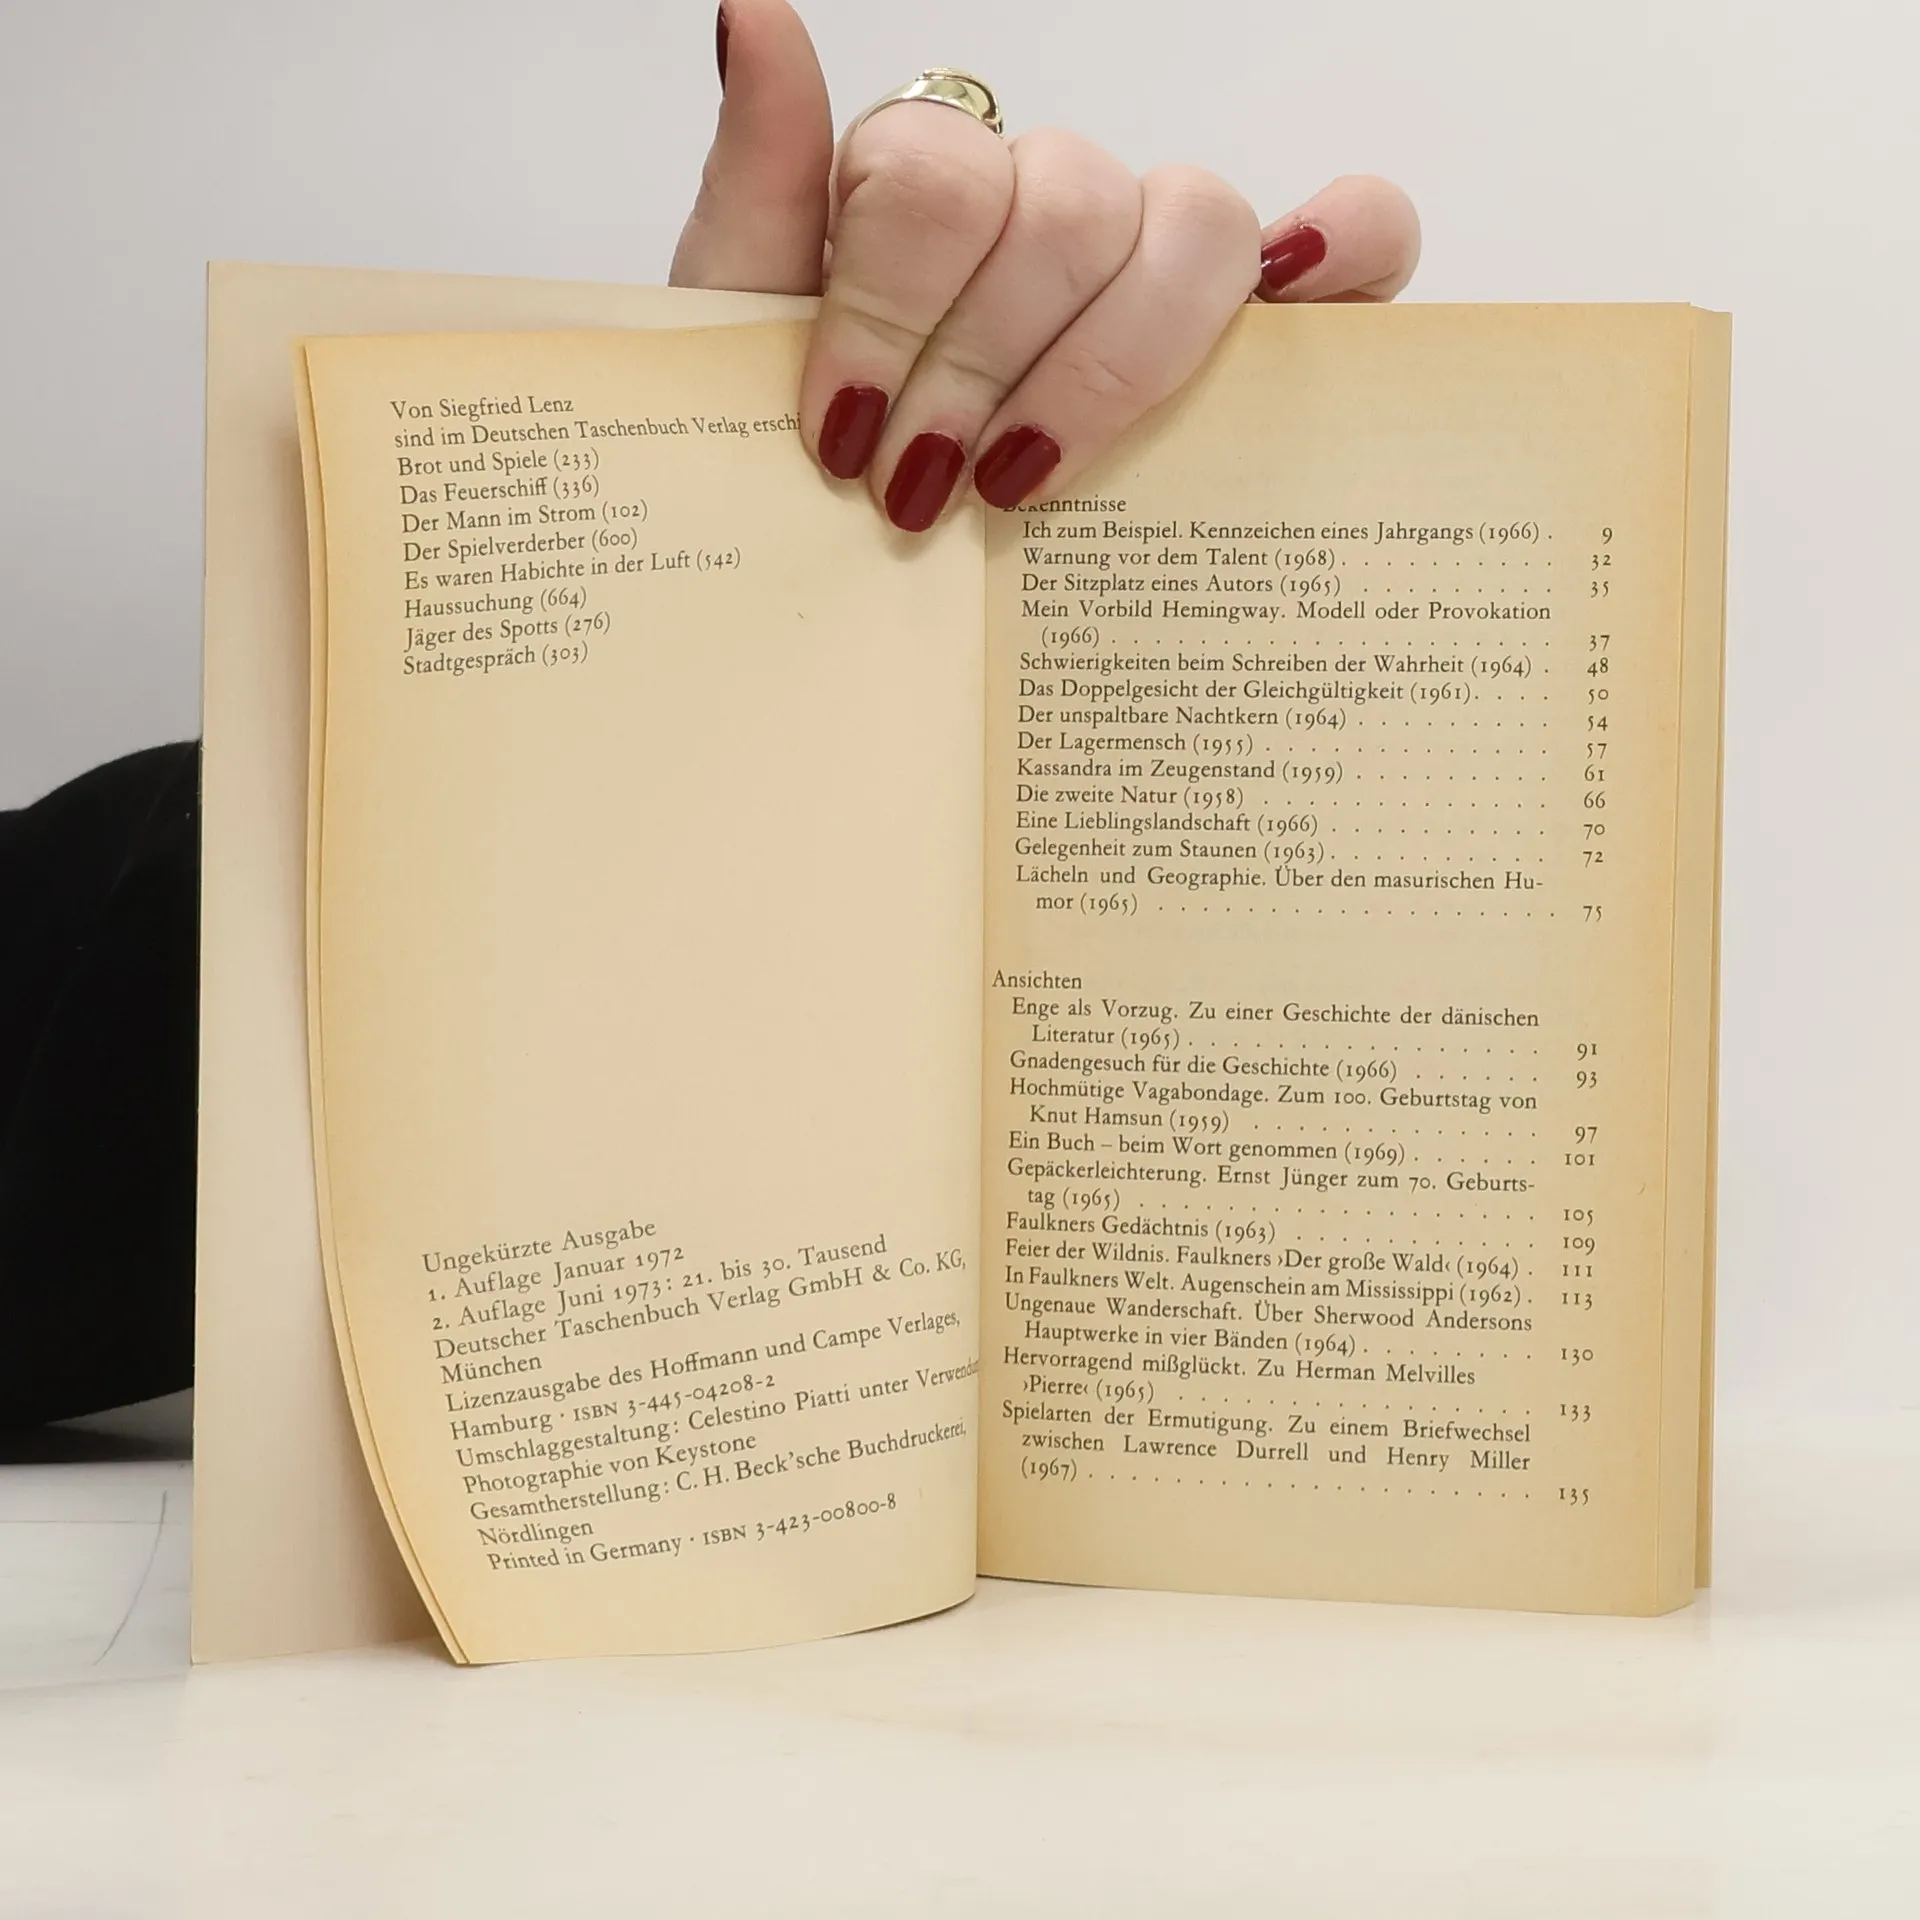 Von Siegfried Lenz
sind im Deutschen Taschenbuch Verlag
Brot und Spiele (233)
Das Feuerschiff (336)
Der Mann im Strom (102)
Der Spielverderber (600)
Es waren Habichte in der Luft (542)
Haussuchung (664)
Jäger des Spotts (276)
Stadtgespräch (303)
Ungekürzte Ausgabe
1. Auflage Januar 1972
2. Auflage Juni 1973: 21. bis 30. Tausend
Deutscher Taschenbuch Verlag GmbH & Co. KG,
München
Lizenzausgabe des Hoffmann und Campe Verlages,
Hamburg · ISBN 3-445-04208-2
Umschlaggestaltung: Celestino Piatti unter
Photographie von Keystone
Gesamtherstellung: C. H. Beck'sche Buchdruckerei,
Nördlingen
Printed in Germany · ISBN 3-423-00800-8
Ich zum Beispiel. Kennzeichen eines Jahrgangs (1966) . 9
Warnung vor dem Talent (1968) . . . . . . . . . 32
Der Sitzplatz eines Autors (1965) . . . . . . . . . 35
Mein Vorbild Hemingway. Modell oder Provokation
(1966) . . . . . . . . . . . . . . . . . . 37
Schwierigkeiten beim Schreiben der Wahrheit (1964) . 48
Das Doppelgesicht der Gleichgültigkeit (1961) . . . . 50
Der unspaltbare Nachtkern (1964) . . . . . . . . . 54
Der Lagermensch (1955) . . . . . . . . . . . . . 57
Kassandra im Zeugenstand (1959) . . . . . . . . . 61
Die zweite Natur (1958) . . . . . . . . . . . . . 66
Eine Lieblingslandschaft (1966) . . . . . . . . . . 70
Gelegenheit zum Staunen (1963) . . . . . . . . . . 72
Lächeln und Geographie. Über den masurischen Hu-
mor (1965) . . . . . . . . . . . . . . . . . 75
Ansichten
Enge als Vorzug. Zu einer Geschichte der dänischen
Literatur (1965) . . . . . . . . . . . . . . . 91
Gnadengesuch für die Geschichte (1966) . . . . . . 93
Hochmütige Vagabondage. Zum 100. Geburtstag von
Knut Hamsun (1959) . . . . . . . . . . . . . 97
Ein Buch – beim Wort genommen (1969) . . . . . . 101
Gepäckerleichterung. Ernst Jünger zum 70. Geburts-
tag (1965) . . . . . . . . . . . . . . . . . 105
Faulkners Gedächtnis (1963) . . . . . . . . . . . 109
Feier der Wildnis. Faulkners ›Der große Wald‹ (1964) . 111
In Faulkners Welt. Augenschein am Mississippi (1962) . 113
Ungenaue Wanderschaft. Über Sherwood Andersons
Hauptwerke in vier Bänden (1964) . . . . . . . . 130
Hervorragend mißglückt. Zu Herman Melvilles
›Pierre‹ (1965) . . . . . . . . . . . . . . . 133
Spielarten der Ermutigung. Zu einem Briefwechsel
zwischen Lawrence Durrell und Henry Miller
(1967) . . . . . . . . . . . . . . . . . . 135